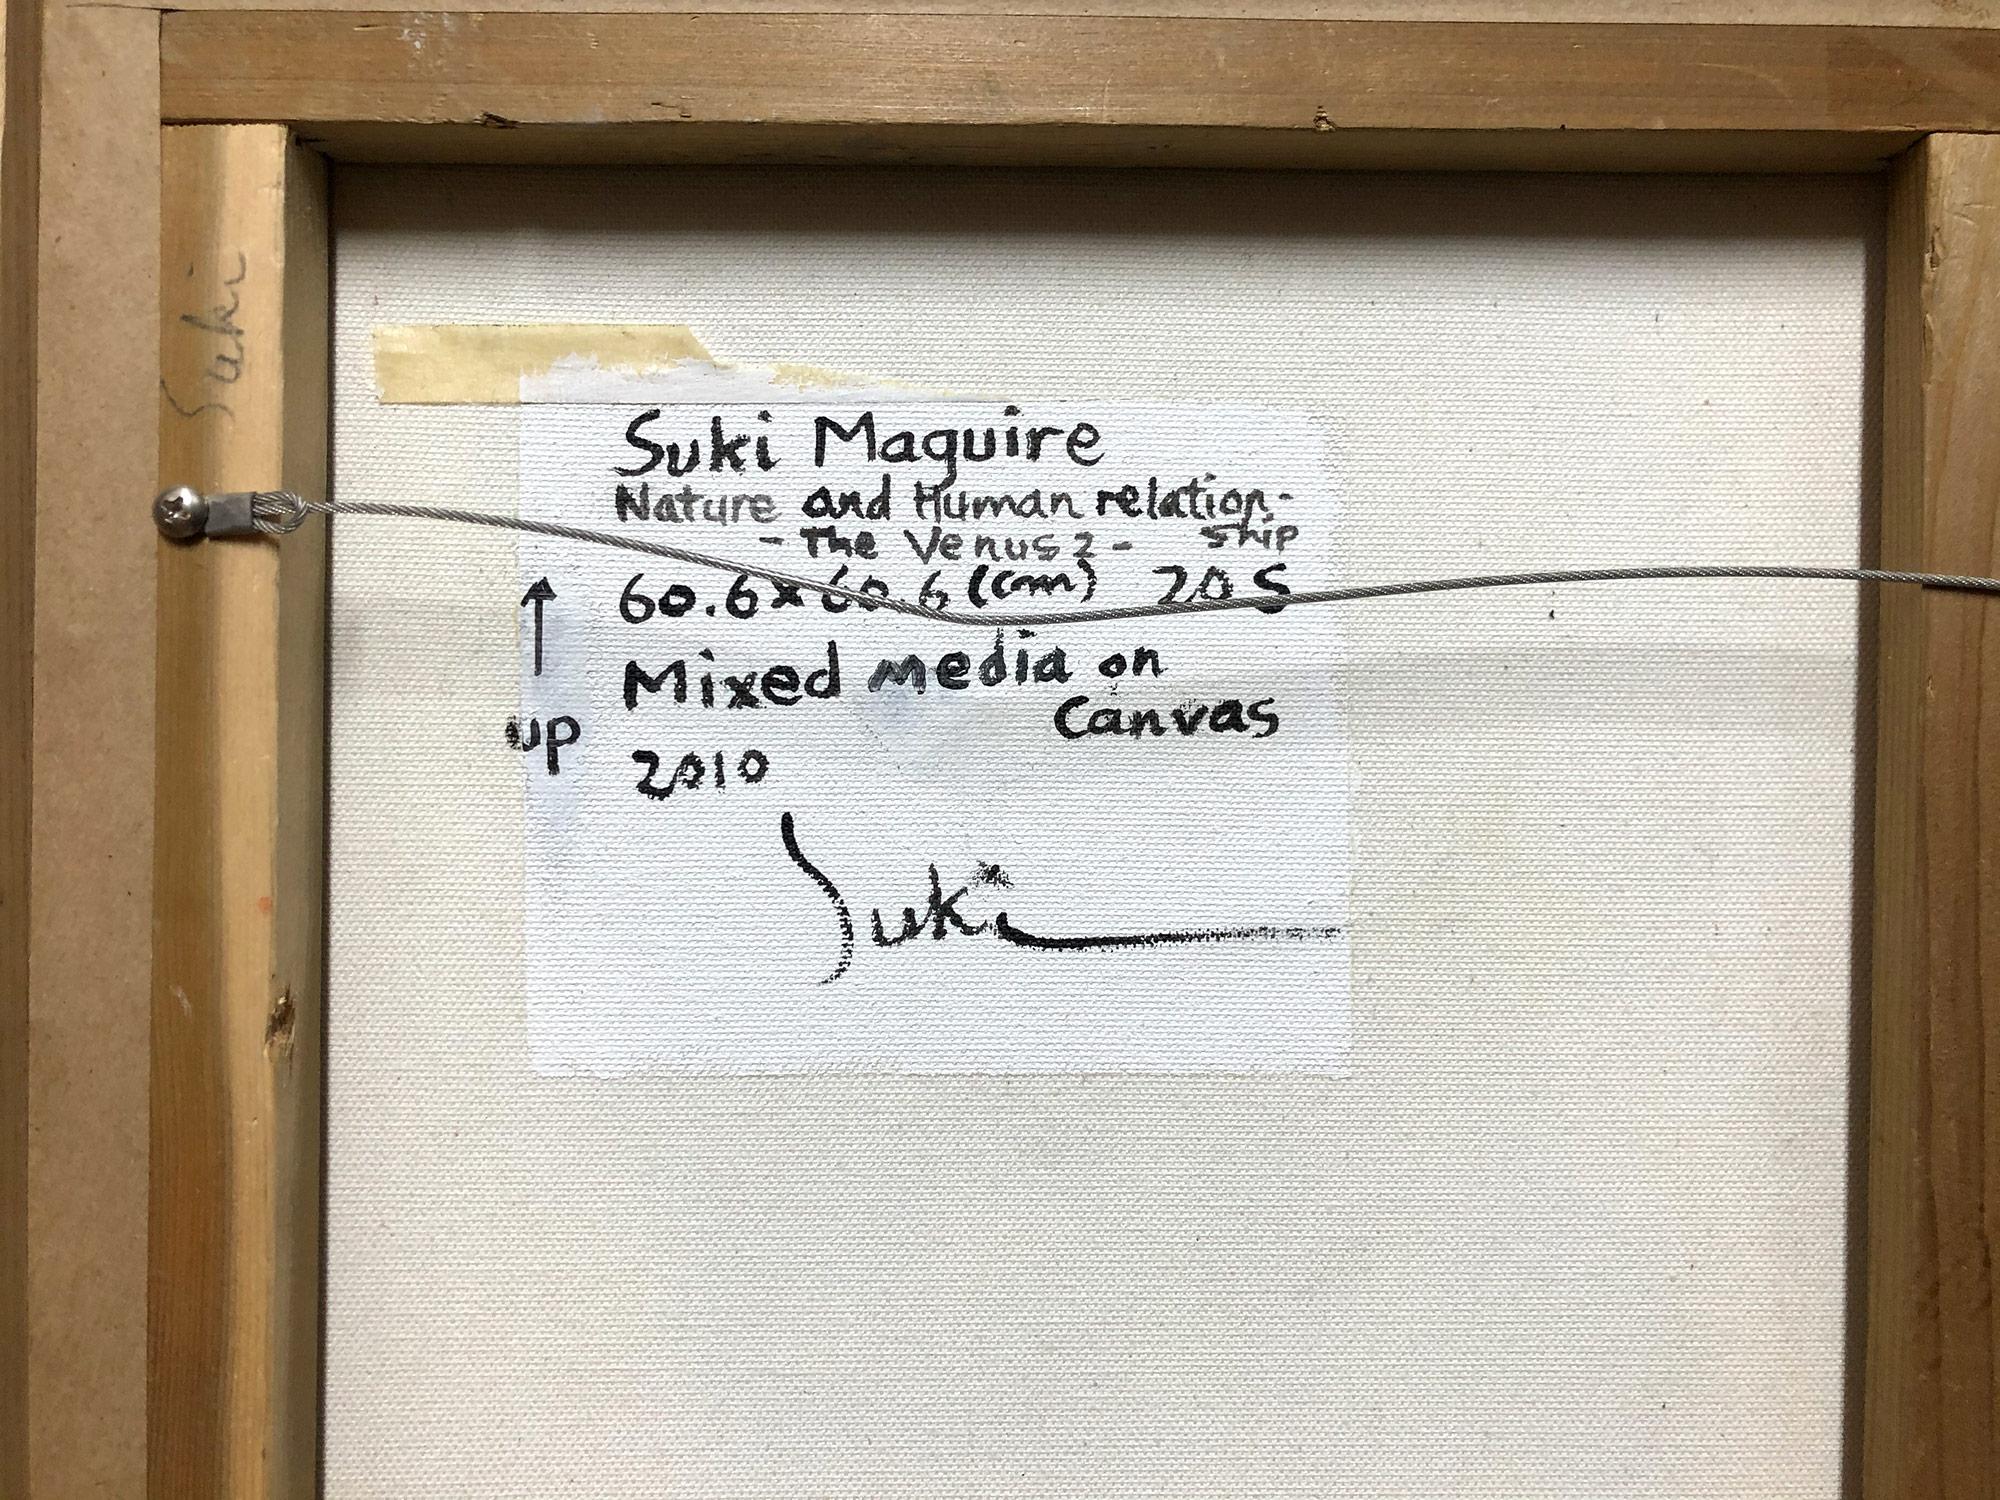 Suki
Suki Maguire
Nature and Human relation-
ship
- The Venus 2 -
60.6 x 60.6 (cm) 20 S
Mixed media on
Canvas
up
2010
Suki